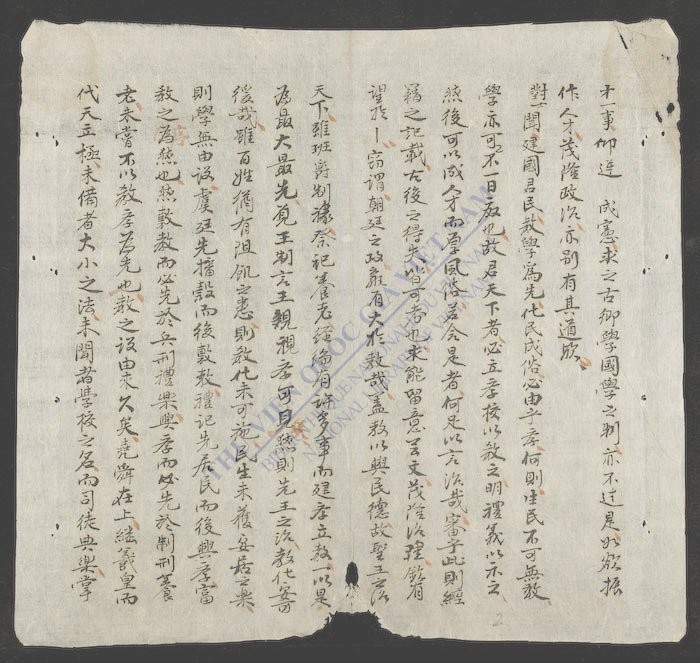 才一事仰遵 成憲求之古鄉學國學之制亦不过是如欲振
作人才茂隆政治亦別有其道欤
對聞建國君民教學爲先化民成俗必由乎孝何則生民不可無教
學亦可不一日廢也故君天下者必立孝校以教之明禮義以示之
然後可以成人才而厚風俗若舍是者何足以言治哉審乎此則經
籍之記載古後之得失皆可考也求能留意
望於 窃謂朝廷之政嚴有大於教哉盖教以興民德故聖王之治
天下雖班爵制祿祭祀養老經綸有許多事而建孝立教一以是
爲最大最先見王制言王親視孝可見然則先王之治教化
後哉雖百姓猶有阻飢之患則教化未可施民生未獲安居之樂
則學無由設虞廷先播穀而後敷教禮記先居民而後興孝富
教之爲然也然敷教而必先於兵刑禮樂興孝而必先於制刑養
老未嘗不以教孝爲先也教之設由來久矣堯舜在上継羲皇而
代天立極未備者大小之法未聞者學校之名而司徒典樂掌
2
THƯ VIỆN QUỐC GIA VIỆT NAM
BIBLIOTHÈQUE NATIONALE DU VIETNAM
NATIONAL LIBRARY OF VIETNAM